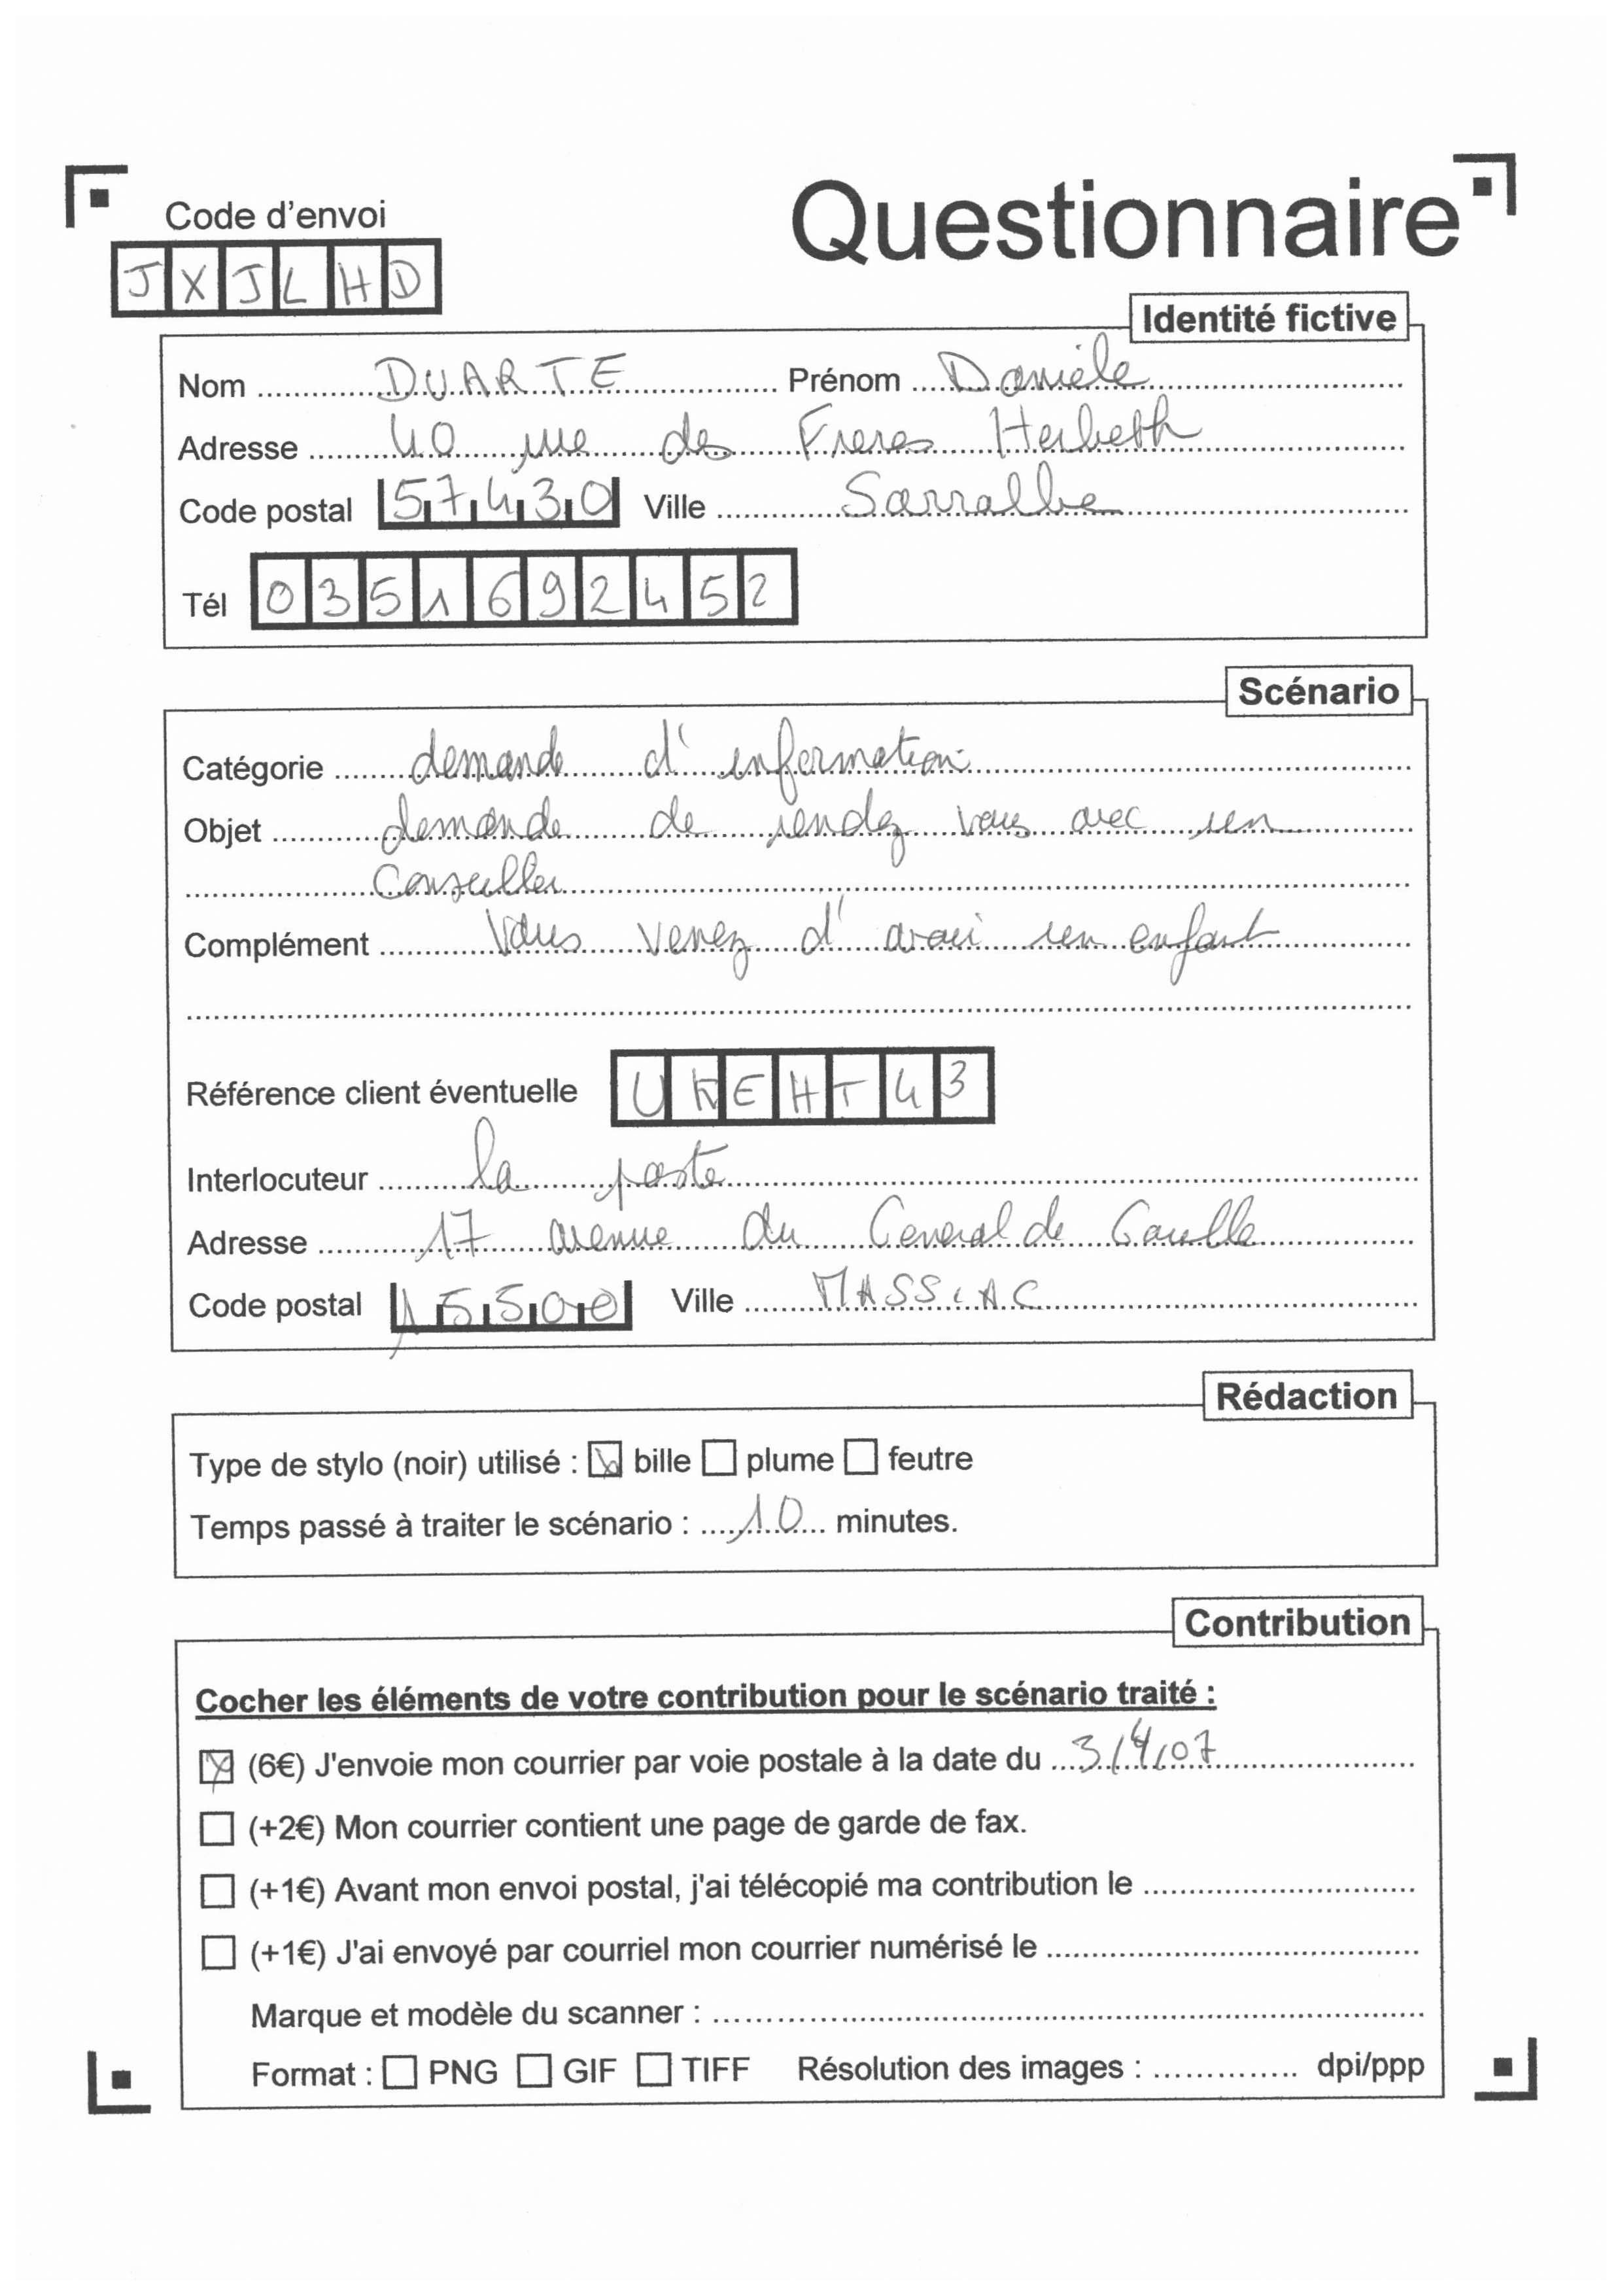 Questionnaire
Code d'envoi
JXJLHD
Identité fictive
Nom DUARTE Prénom Daniele
Adresse 40 rue des Freres Herbeth
Code postal 57430 Ville Sarralbe
Tél 0351692452
Scénario
Catégorie demande d'information
Objet demande de rendez vous avec un
Conseiller
Complément Vous venez d'avoir un enfant
Référence client éventuelle U EHT43
Interlocuteur la poste
Adresse 17 avenue du General de Gaulle
Code postal 15500 Ville MASSIAC
Rédaction
Type de stylo (noir) utilisé : bille plume feutre
Temps passé à traiter le scénario : 10 minutes.
Contribution
Cocher les éléments de votre contribution pour le scénario traité :
(6€) J'envoie mon courrier par voie postale à la date du 3/4/07
(+2€) Mon courrier contient une page de garde de fax.
(+1€) Avant mon envoi postal, j'ai télécopié ma contribution le
(+1€) J'ai envoyé par courriel mon courrier numérisé le
Marque et modèle du scanner :
Format : PNG GIF TIFF Résolution des images : dpi/ppp